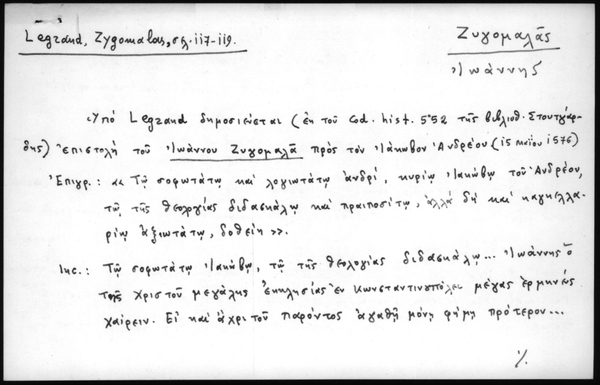 Legrand, Zygomalas, σελ. 117-119.
Ζυγομαλᾶς
Ἰωάννης
Ὑπὸ Legrand δημοσιεύεται (ἐκ τοῦ Cod. hist. 552 τῆς βιβλιοθ. Στουτγάρ-
δης) ἐπιστολὴ τοῦ Ἰωάννου Ζυγομαλᾶ πρὸς τὸν Ἰάκωβον Ἀνδρέου (15 μαΐου 1576)
Ἐπιγρ.: «Τῷ σοφωτάτῳ καὶ λογιωτάτῳ ἀνδρί, κυρίῳ Ἰακώβῳ τοῦ Ἀνδρέου,
τῷ τῆς θεολογίας διδασκάλῳ καὶ πραιποσίτῳ, ἀλλὰ δὴ καὶ καγκελλα-
ρίῳ ἀξιωτάτῳ, δοθείη».
Inc.: Τῷ σοφωτάτῳ Ἰακώβῳ, τῷ τῆς θεολογίας διδασκάλῳ... Ἰωάννης ὁ
τῆς Χριστοῦ μεγάλης ἐκκλησίας ἐν Κωνσταντινουπόλει μέγας ἑρμηνεὺς
χαίρειν. Εἰ καὶ ἄχρι τοῦ παρόντος ἀγαθῇ μόνῃ φήμῃ πρότερον...
%